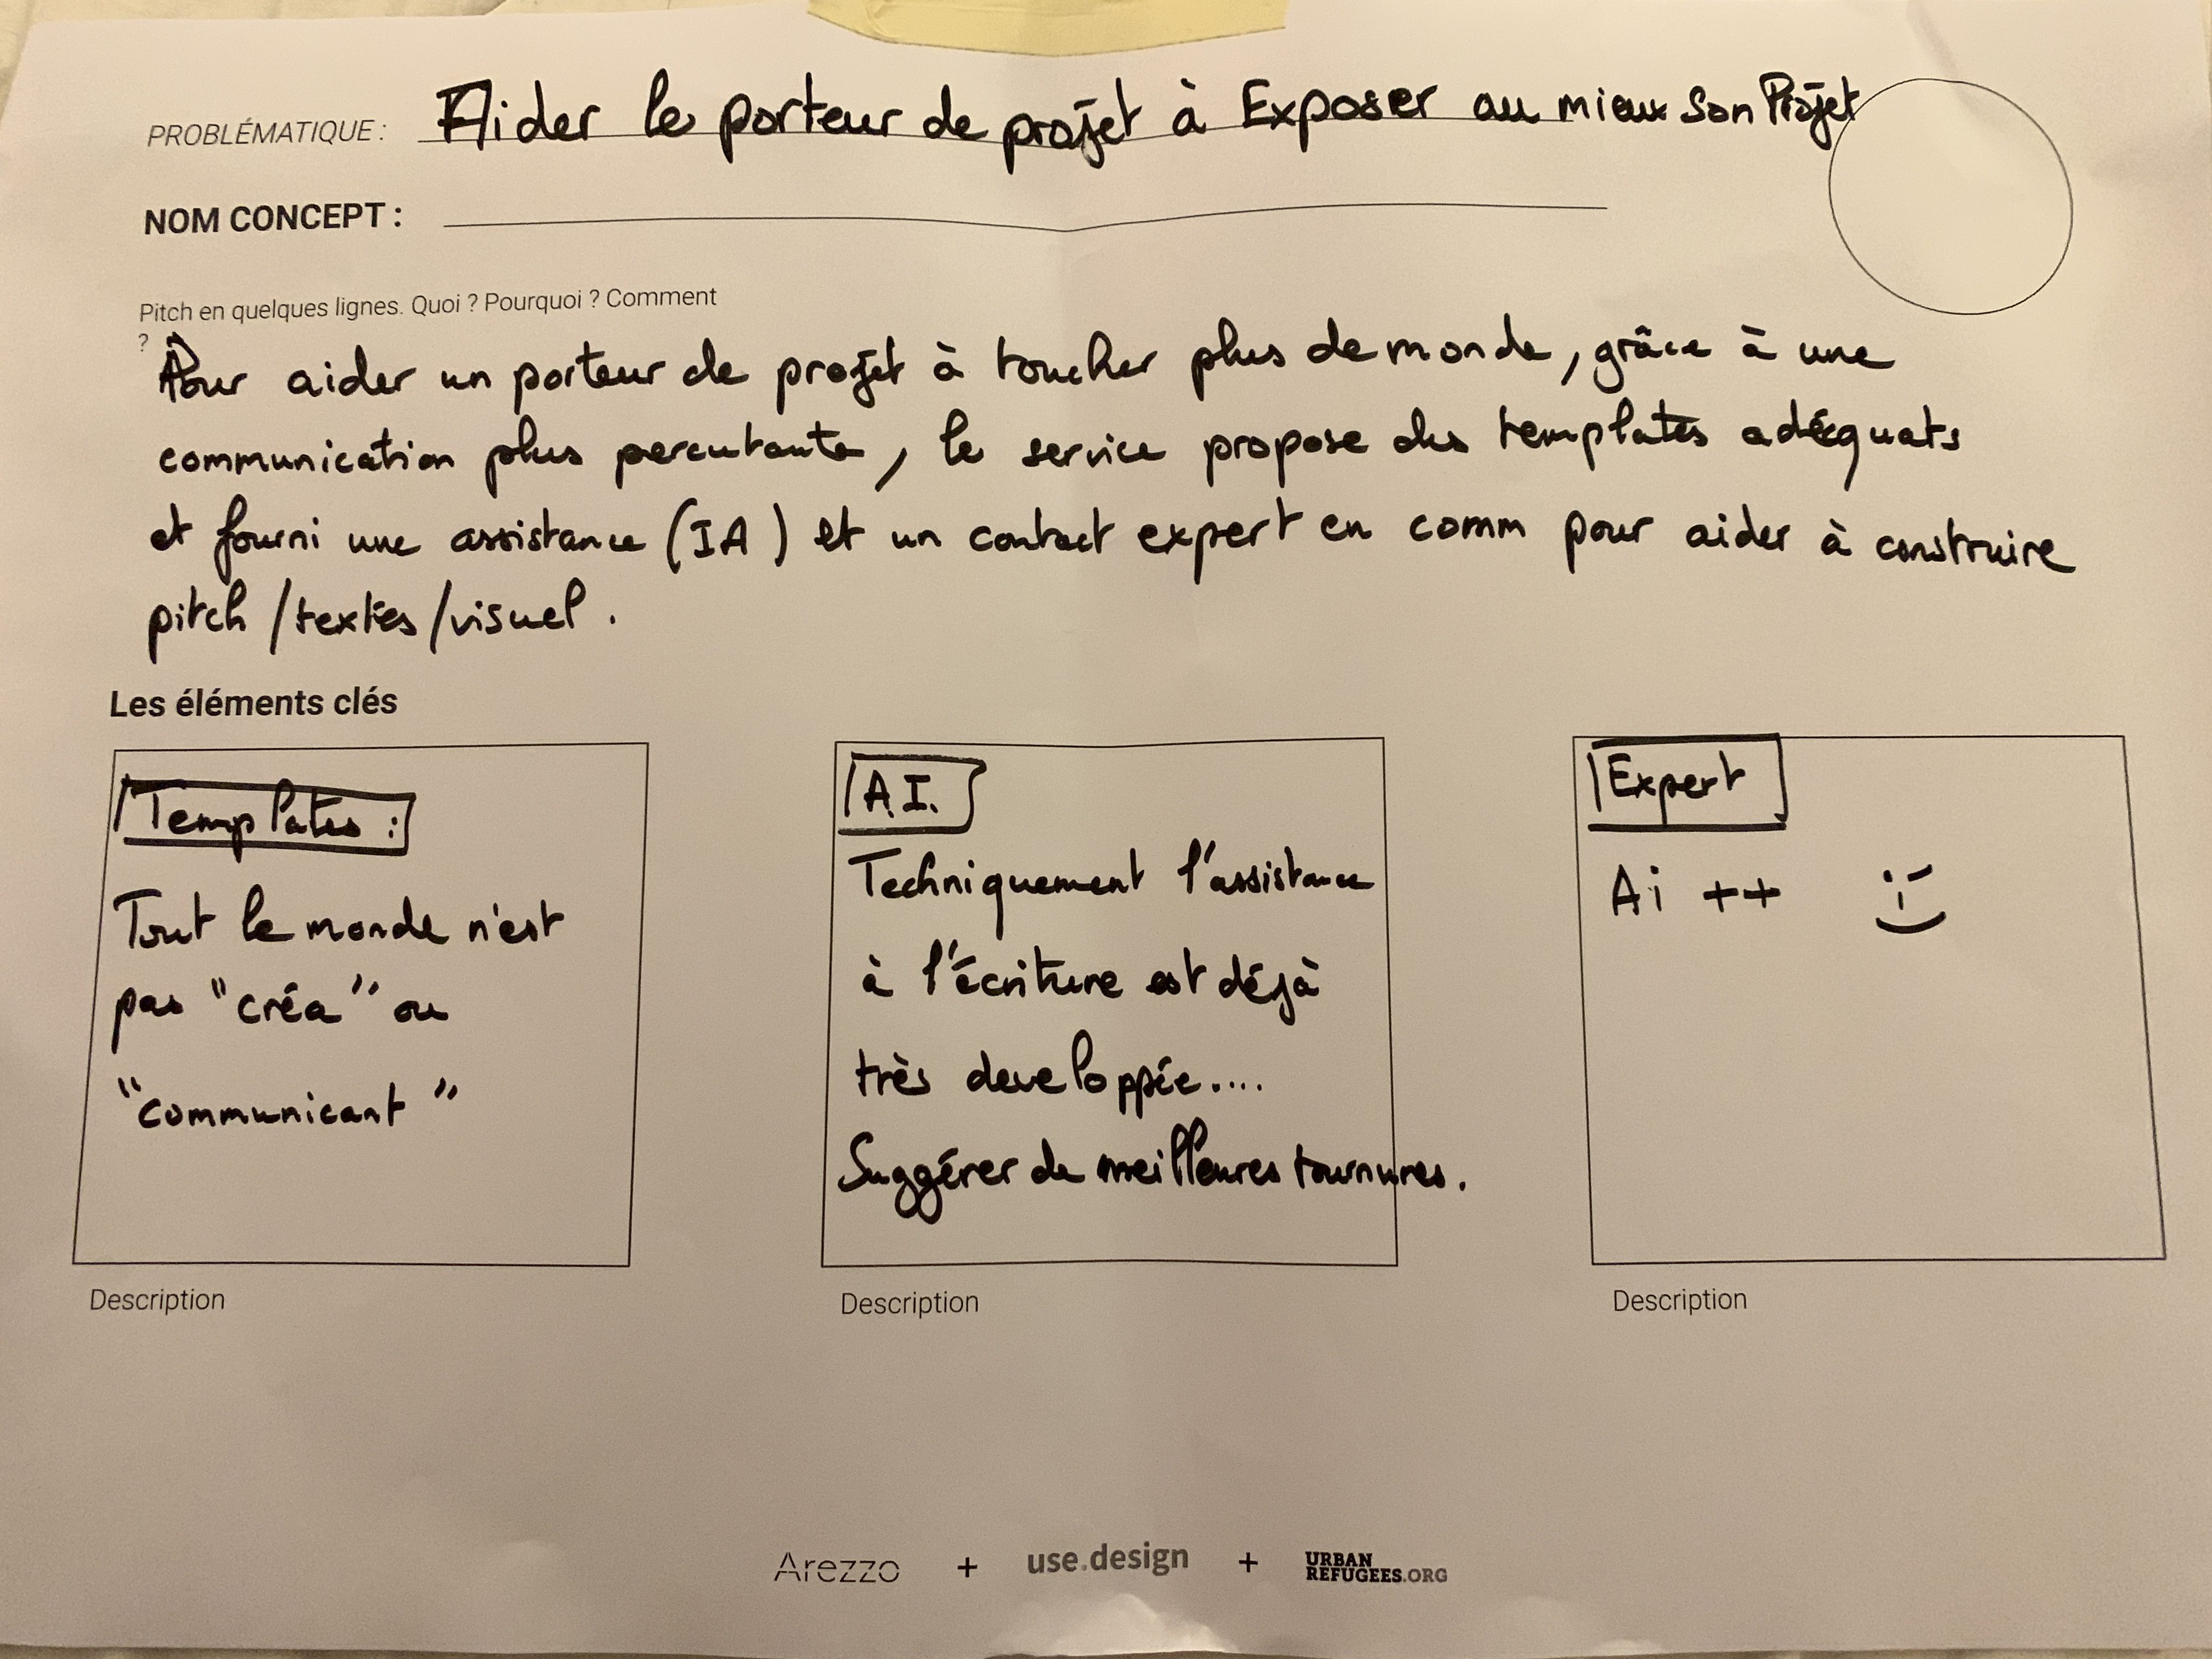 PROBLÉMATIQUE : Aider le porteur de projet à Exposer au mieux son Projet
NOM CONCEPT :
Pitch en quelques lignes. Quoi ? Pourquoi ? Comment
?
Pour aider un porteur de projet à toucher plus de monde, grâce à une
communication plus percutante, le service propose des templates adéquats
et fourni une assistance (IA) et un contact expert en comm pour aider à construire
pitch /textes /visuel.
Les éléments clés
Templates :
Tout le monde n'est
pas "créa" ou
"communicant"
Description
A.I.
Techniquement l'assistance
à l'écriture est déjà
très developpée....
Suggérer de meilleures tournures.
Description
Expert
Ai ++
Description
Arezzo + use.design + URBAN
REFUGEES.ORG